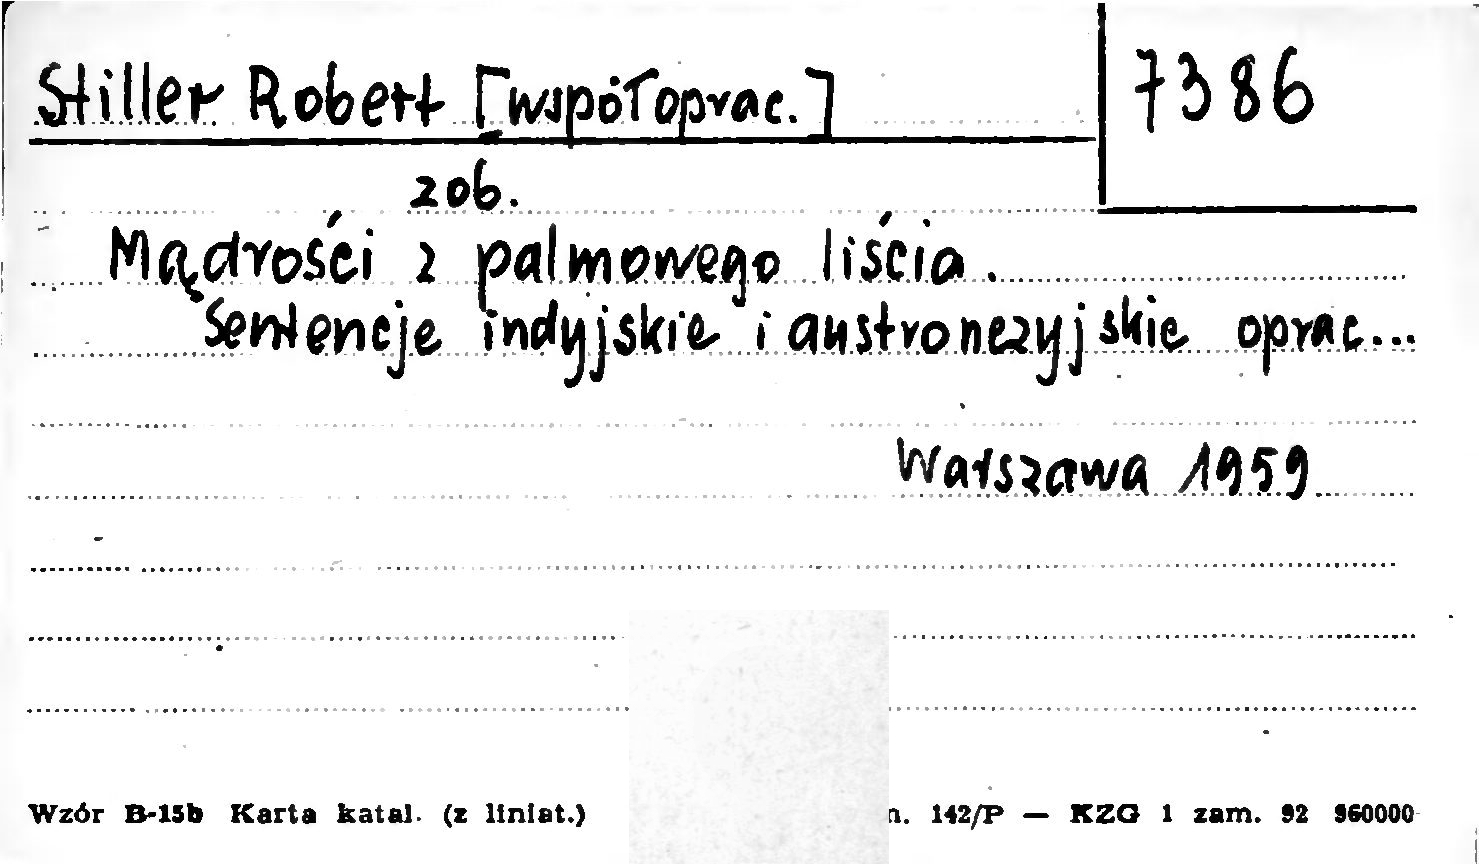 Stiller Robert [współoprac.]
7386
zob.
Mądrości z palmowego liścia.
Sentencje indyjskie i austronezyjskie oprac...
Warszawa 1959
Wzór B-15b Karta katal. (z liniat.) 142/P — KZG 1 zam. 92 960000